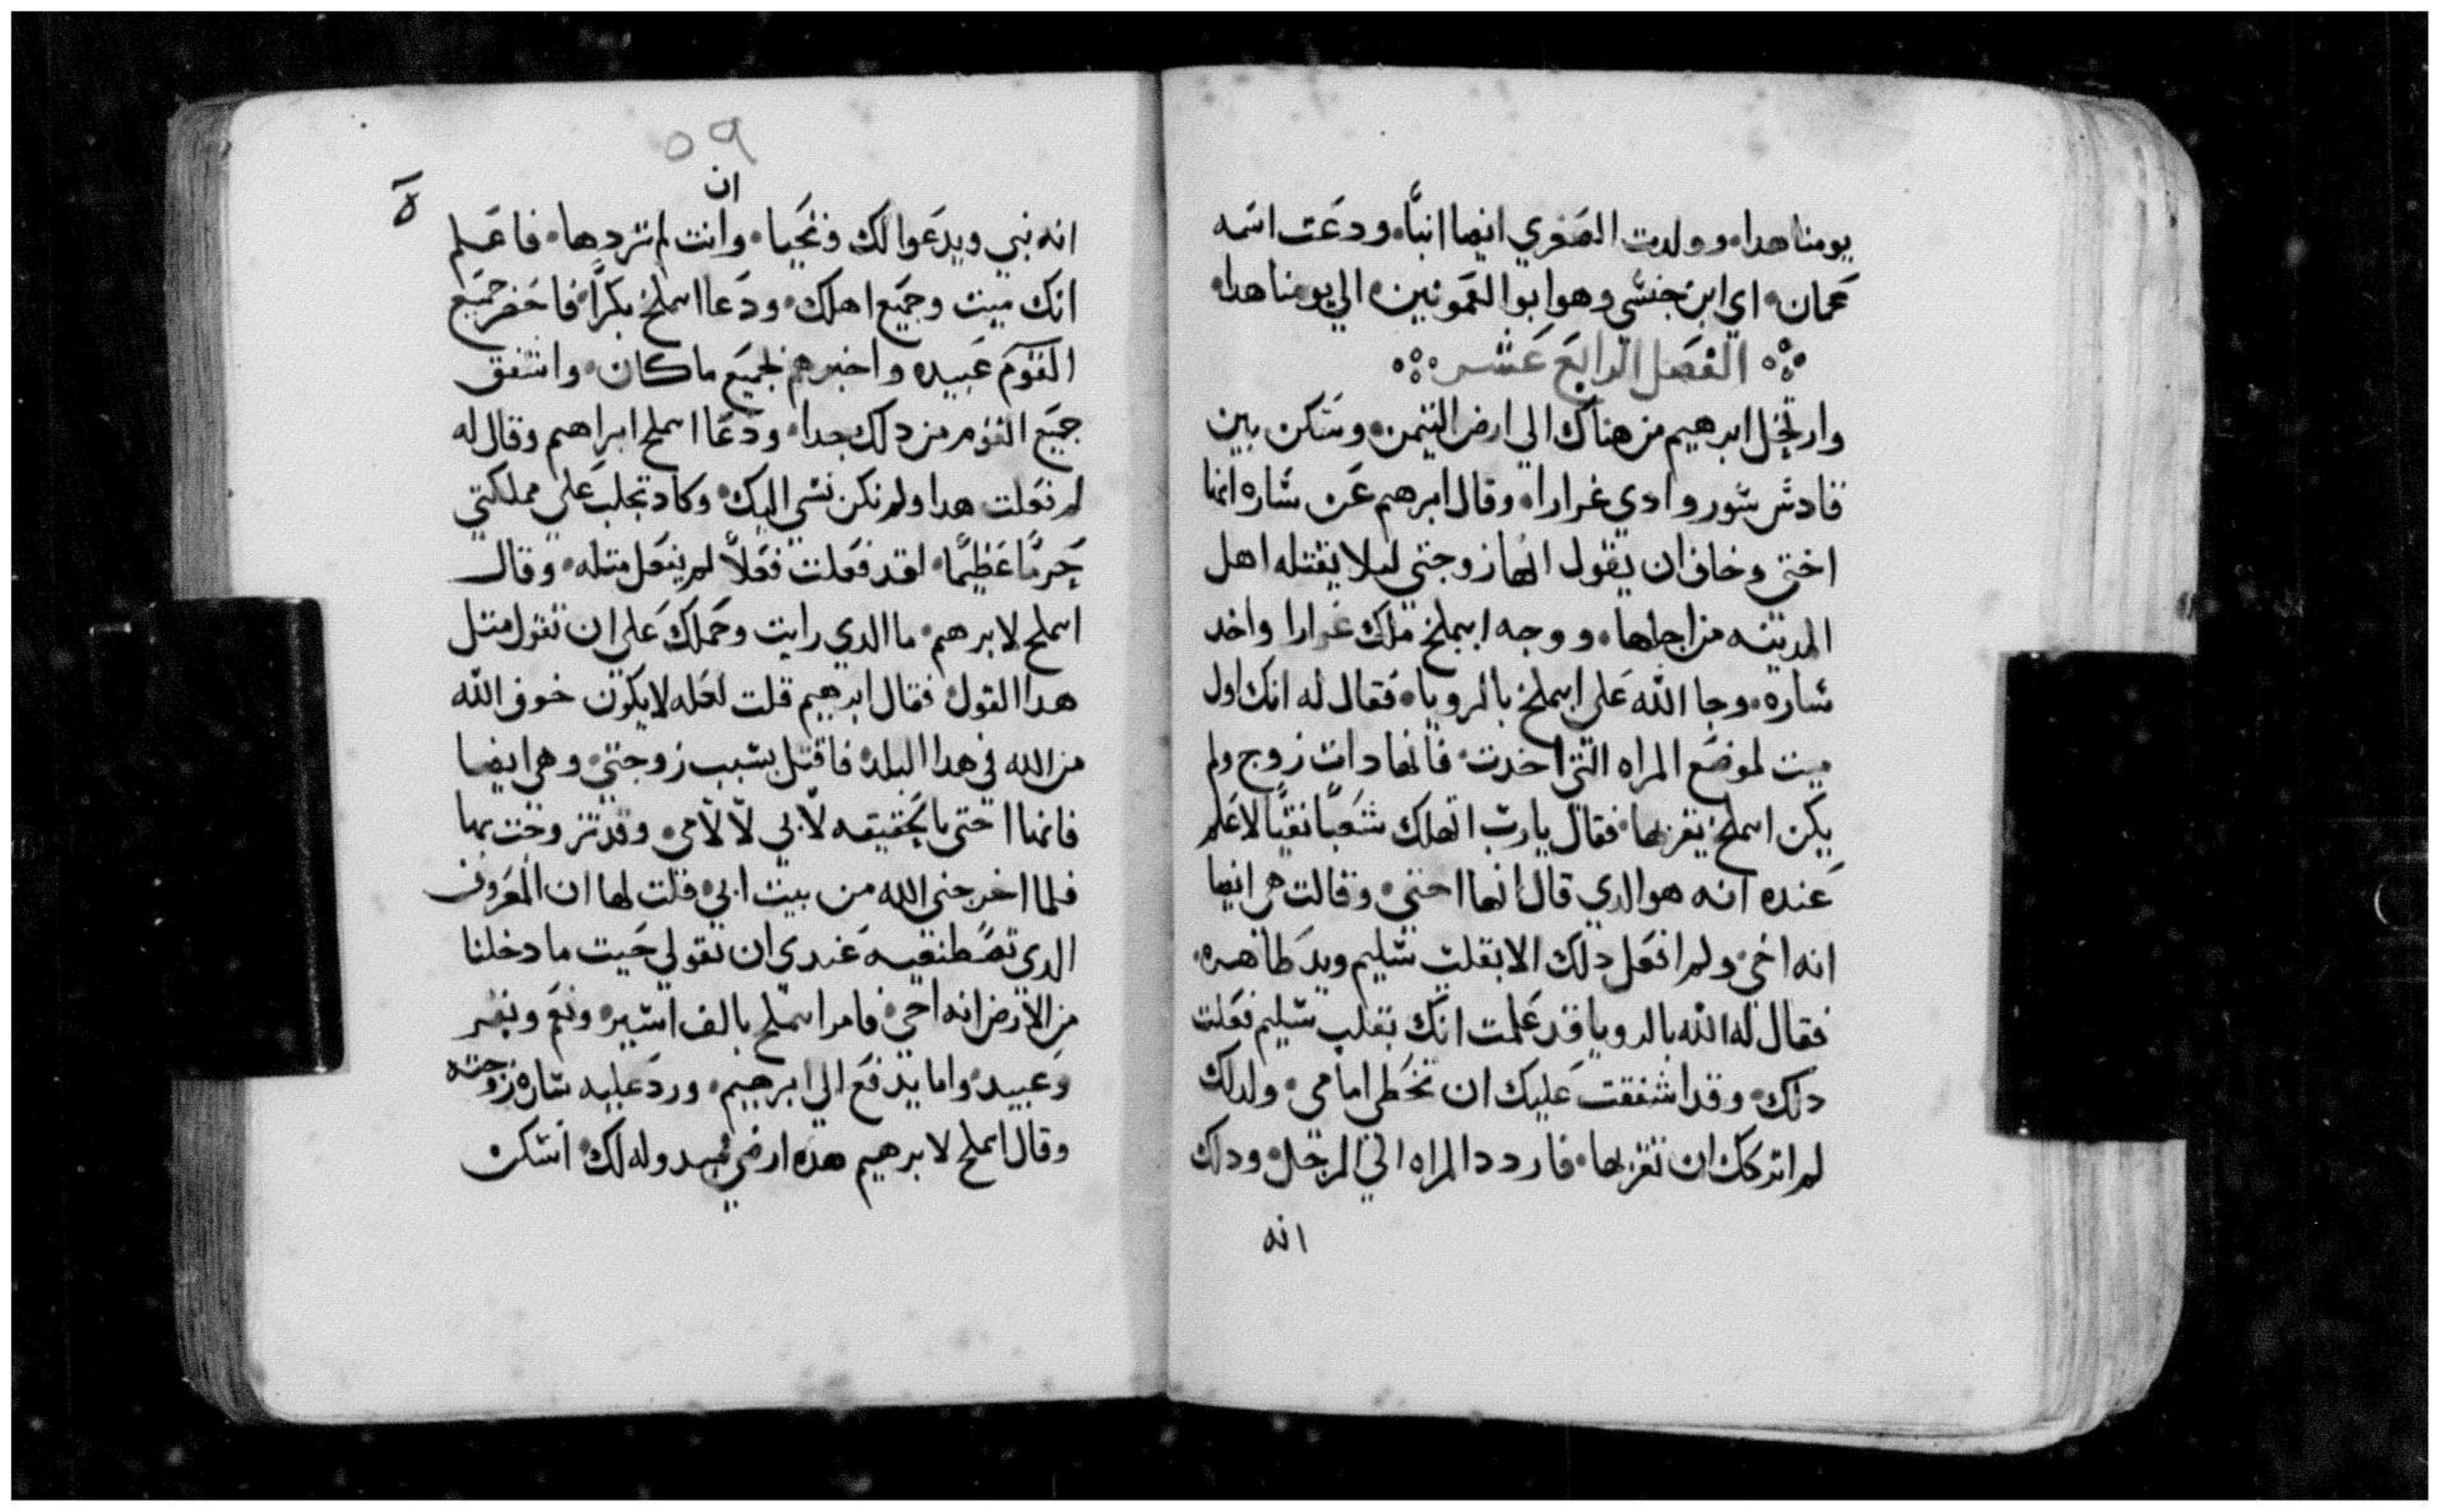 يومنا هدا، وولدت الصغري ايضا ابنًا، ودعت اسمه
عمان، اي ابن جنسي وهوا بوا العمونين، الي يومنا هدا،
الفصل الرابع عشر
وارتحل ابرهيم من هناك الي ارض التيمن، وسكن بين
قادش سور وادي غرارا، وقال ابرهيم عن ساره انها
اختي وخاف ان يقول انها زوجتي ليلا يقتله اهل
المدينه من اجلها، ووجه ابيملخ ملك غرارا واخد
ساره، وجا الله علي ابيملخ بالرويا، فقال له انك اول
ميت لموضع المراه التي اخدت، فانها دات زوج ولم
يكن ابيملخ يقربها، فقال يا رب اتهلك شعبًا نقيًا لا علم
عنده انه هو الدي قال انها اختي، وقالت هي ايضا
انه اخي، ولم افعل دلك الا بقلب سليم ويد طاهره،
فقال له الله بالرويا قد علمت انك بقلب سليم فعلت
دلك، وقد اشفقت عليك ان تخطي امامي، ولدلك
لم اتركك ان تقربها، فاردد المراه الي الرجل، ودلك
انه
٥٩
ان
انه نبي ويدعوا لك وتحيا، وانت لم تردها، فاعلم
انك ميت وجميع اهلك، ودعا ابيملخ بكرًا، فاحضر جميع
القوم عبيده واخبرهم بجميع ما كان، واشفق
جميع القوم من دلك جدا، ودعا ابيملخ ابراهيم وقال له
لم فعلت هدا ولم نكن نسي اليك، وكاد تجلب علي مملكتي
جرمًا عظيمًا، لقد فعلت فعلاً لم يفعل مثله، وقال
ابيملخ لابرهيم، ما الدي رايت وحملك علي ان تقول مثل
هدا القول فقال ابرهيم قلت لعله لا يكون خوف الله
من الله في هدا البلد، فاقتل بسبب زوجتي، وهي ايضا
فانها اختي بالحقيقه لابي لا لامي، وقد تزوجت بها
فلما اخرجني الله من بيت ابي، قلت لها ان المعروف
الدي تصطنعيه عندي ان تقولي حيت ما دخلنا
من الارض انه اخي، فامر ابيملخ بالف استير، وغنم وبقر
وعبيد، واما يدفع الي ابرهيم، ورد عليه ساره زوجته
وقال ابيملخ لابرهيم هده ارضي مبدوله لك، اسكن